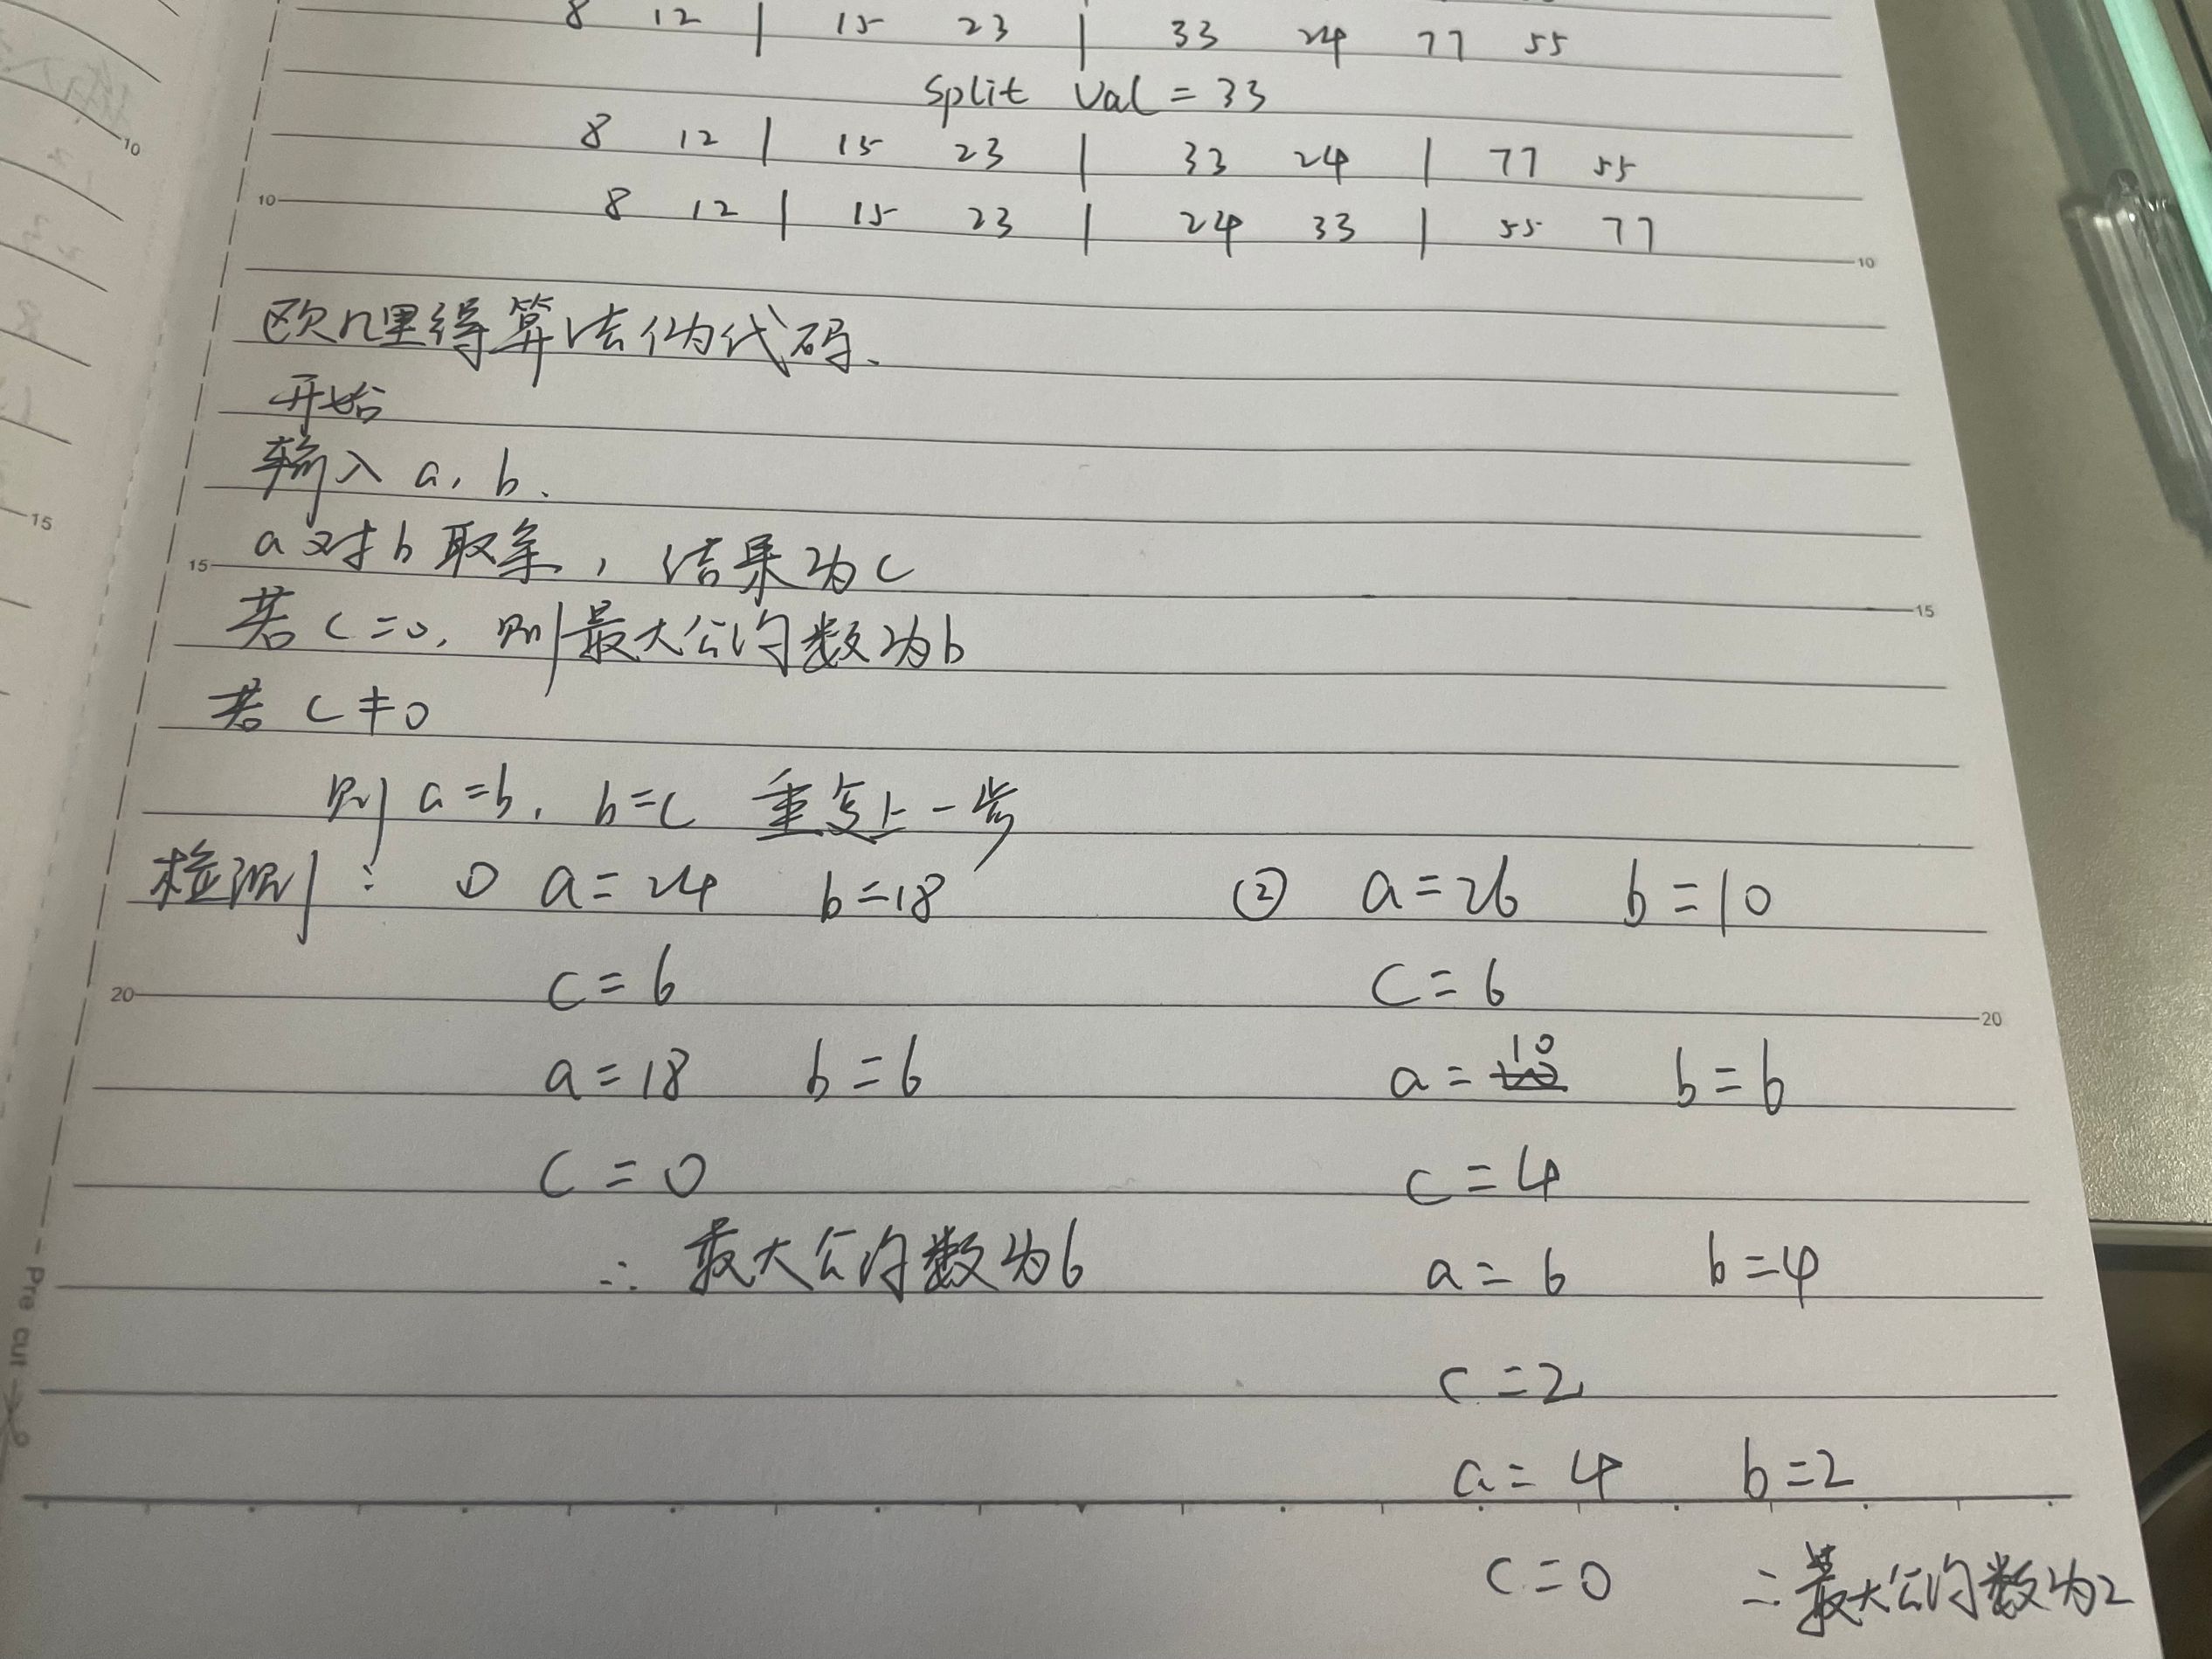 8 12 | 15 23 | 33 24 77 55
Split Val = 33
8 12 | 15 23 | 33 24 | 77 55
10
8 12 | 15 23 | 24 33 | 55 77
10
10
欧几里得算法伪代码、
开始
输入 a, b、
15
a对b取余，结果为c
15
15
若 c=0, 则最大公约数为b
若 c≠0
则 a=b, b=c 重复上一步
检测： ① a=24 b=18 ② a=26 b=10
c=6 c=6
20
20
a=18 b=6 a=10 b=6
c=0 c=4
∴ 最大公约数为6 a=6 b=4
c=2
a=4 b=2
c=0 ∴最大公约数为2
Pre cut